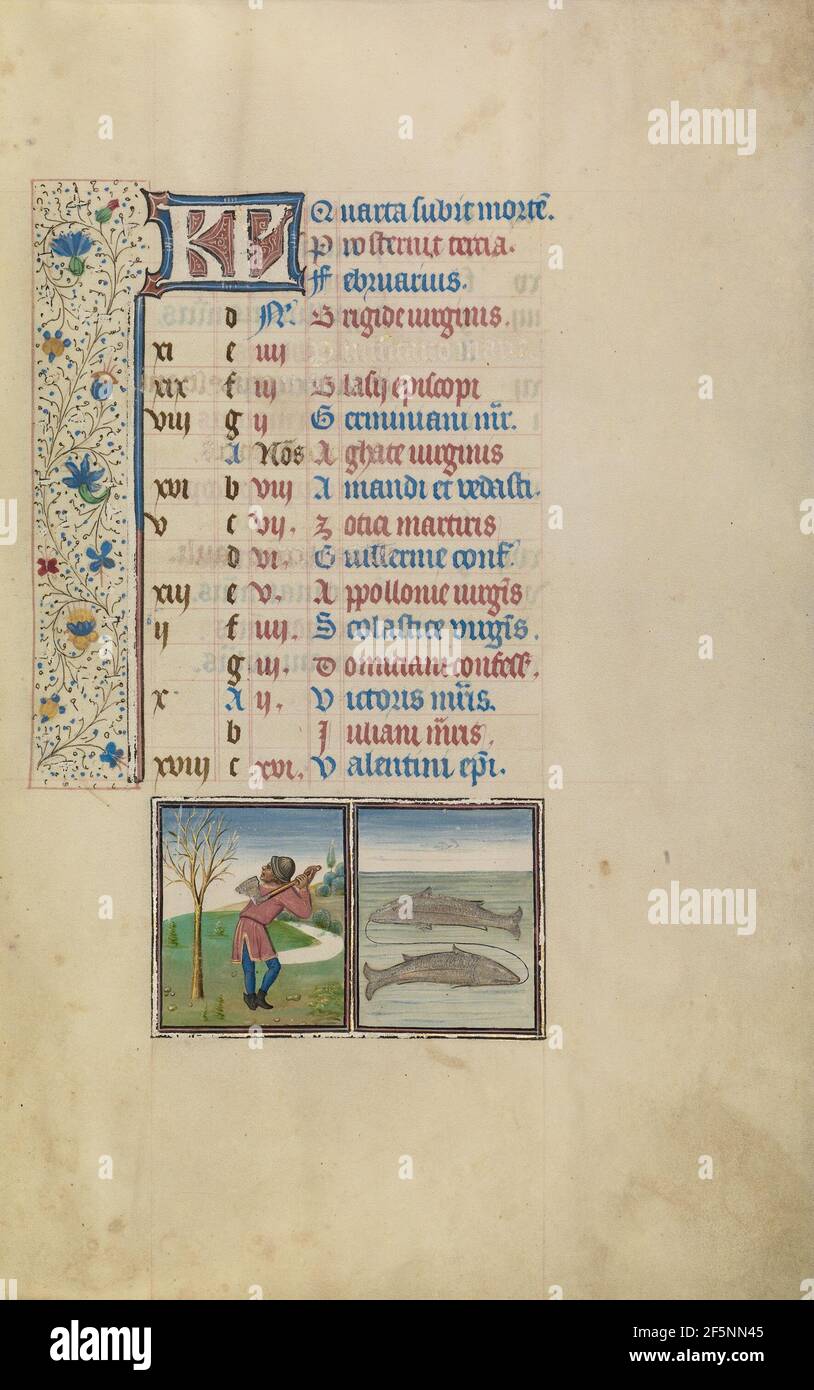 KL Quarta subit mortē.
Prosternit tercia.
Februarius.
d N̄. Brigide virginis.
xi e iiij
xix f iij Blasij episcopi
viij g ij G
A Nōs Aghate virginis
xvi b viij Amandi et vedasti.
v c vij. Zotici martiris
d vi. Guillerme conf̄.
xiij e v. Appollonie virgīs
ij f iiij. Scolastice virgīs.
g iij. Domiciani confess̄.
x A ij. Victoris mr̄is.
b Juliani mr̄is.
xviij c xvi. Valentini ep̄i.
a
alamy
alamy
alamy
Image ID: 2F5NN45
www.alamy.com